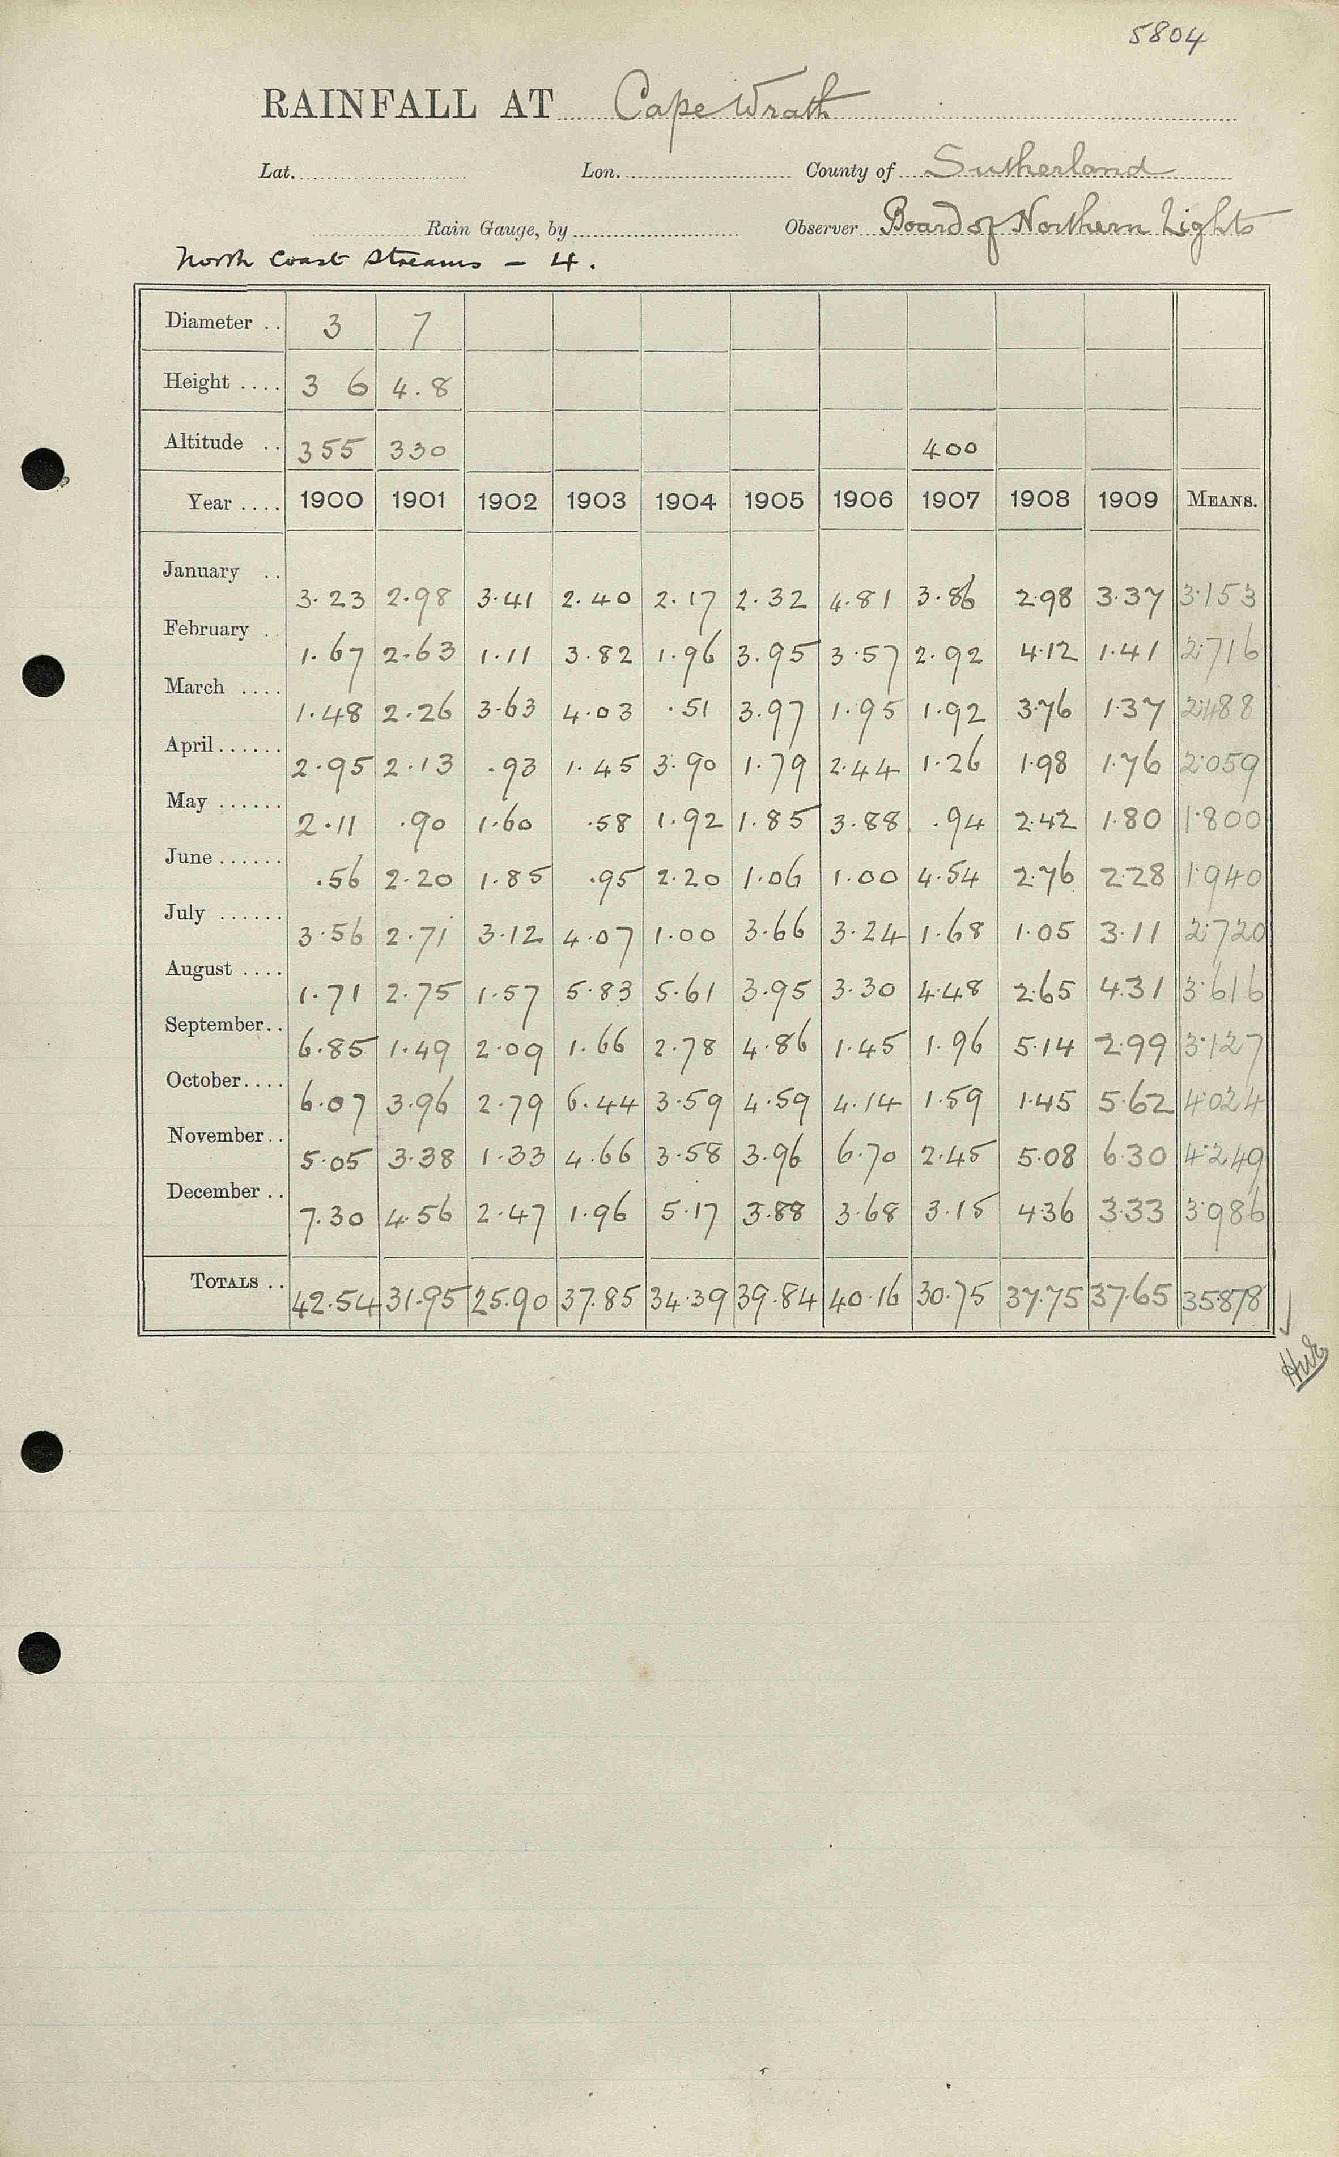 5804
RAINFALL AT Cape Wrath
Lat. Lon. County of Sutherland
Rain Gauge, by Observer Board of Northern Lights
North Coast Streams - 4.
Diameter .. 3 7
Height .... 3 6 4.8
Altitude .. 355 330 400
Year .... 1900 1901 1902 1903 1904 1905 1906 1907 1908 1909 MEANS.
January .. 3.23 2.98 3.41 2.40 2.17 2.32 4.81 3.86 2.98 3.37 3.153
February .. 1.67 2.63 1.11 3.82 1.96 3.95 3.57 2.92 4.12 1.41 2.716
March .... 1.48 2.26 3.63 4.03 .51 3.97 1.95 1.92 3.76 1.37 2.488
April...... 2.95 2.13 .93 1.45 3.90 1.79 2.44 1.26 1.98 1.76 2.059
May ...... 2.11 .90 1.60 .58 1.92 1.85 3.88 .94 2.42 1.80 1.800
June ...... .56 2.20 1.85 .95 2.20 1.06 1.00 4.54 2.76 2.28 1.940
July ...... 3.56 2.71 3.12 4.07 1.00 3.66 3.24 1.68 1.05 3.11 2.720
August .... 1.71 2.75 1.57 5.83 5.61 3.95 3.30 4.48 2.65 4.31 3.616
September.. 6.85 1.49 2.09 1.66 2.78 4.86 1.45 1.96 5.14 2.99 3.127
October.... 6.07 3.96 2.79 6.44 3.59 4.59 4.14 1.59 1.45 5.62 4.024
November.. 5.05 3.38 1.33 4.66 3.58 3.96 6.70 2.45 5.08 6.30 4.249
December .. 7.30 4.56 2.47 1.96 5.17 3.88 3.68 3.15 4.36 3.33 3.986
TOTALS .. 42.54 31.95 25.90 37.85 34.39 39.84 40.16 30.75 37.75 37.65 35.878